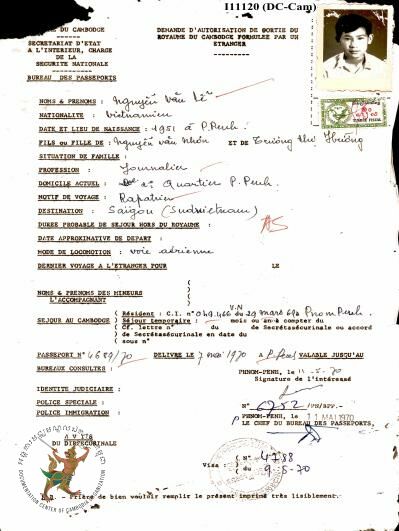 111120 (DC-Cam)
DU CAMBODGE
SECRETARIAT D'ETAT
A L'INTERIEUR, CHARGE
DE LA
SECURITE NATIONALE
BUREAU DES PASSEPORTS
DEMANDE D'AUTORISATION DE SORTIE DU
ROYAUME DU CAMBODGE FORMULEE PAR UN
ETRANGER
NOMS & PRENOMS : Nguyễn Văn Lê
NATIONALITE : Vietnamien
DATE ET LIEU DE NAISSANCE : 1951 à P. Penh.
FILS ou FILLE DE : Nguyễn Văn Nhơn ET DE Trương Thu Hường
SITUATION DE FAMILLE :
PROFESSION : Journalier
DOMICILE ACTUEL : 2è Quartier P. Penh.
MOTIF DE VOYAGE : Rapatrier
DESTINATION : Saïgon (Sudvietnam)
DUREE PROBABLE DE SEJOUR HORS DU ROYAUME :
DATE APPROXIMATIVE DE DEPART :
MODE DE LOCOMOTION : voie aérienne
DERNIER VOYAGE A L'ETRANGER POUR LE
NOMS & PRENOMS DES MINEURS
L'ACCOMPAGNANT
V.N
( Résident : C.I. n° 049.466 du 29 mars 69 à Pnom Penh.
SEJOUR AU CAMBODGE ( Séjour temporaire : mois ou an à compter du
( Cf. lettre n° du de Secrétasécurinale ou accord
( de Secrétasécurinale en date du
( sous n°
PASSEPORT N° 4689/70 DELIVRE LE 7 mai 1970 A P. Penh VALABLE JUSQU'AU
BUREAUX CONSULTES : PHNOM-PENH, le 11-5-70
Signature de l'intéressé
IDENTITE JUDICIAIRE :
POLICE SPECIALE : N° 6752 /PN/BPP.-
POLICE IMMIGRATION : PHNOM-PENH, le 11 MAI 1970
LE CHEF DU BUREAU DES PASSEPORTS,
AVIS
DU DIRSECURINALE
( N° 4788
Visa : (
( du 9-5-70
N.B. - Prière de bien vouloir remplir le présent imprimé très lisiblement.
DOCUMENTATION CENTER OF CAMBODIA